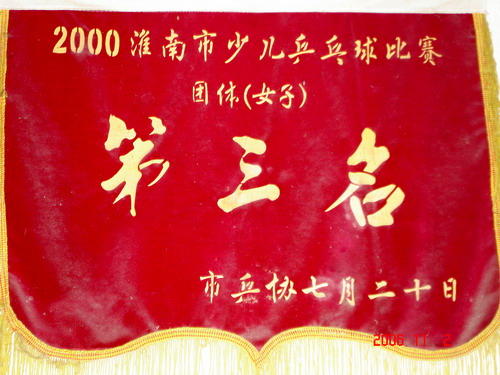 2000淮南市少儿乒乓球比赛
团体(女子)
第三名
市乒协七月二十日